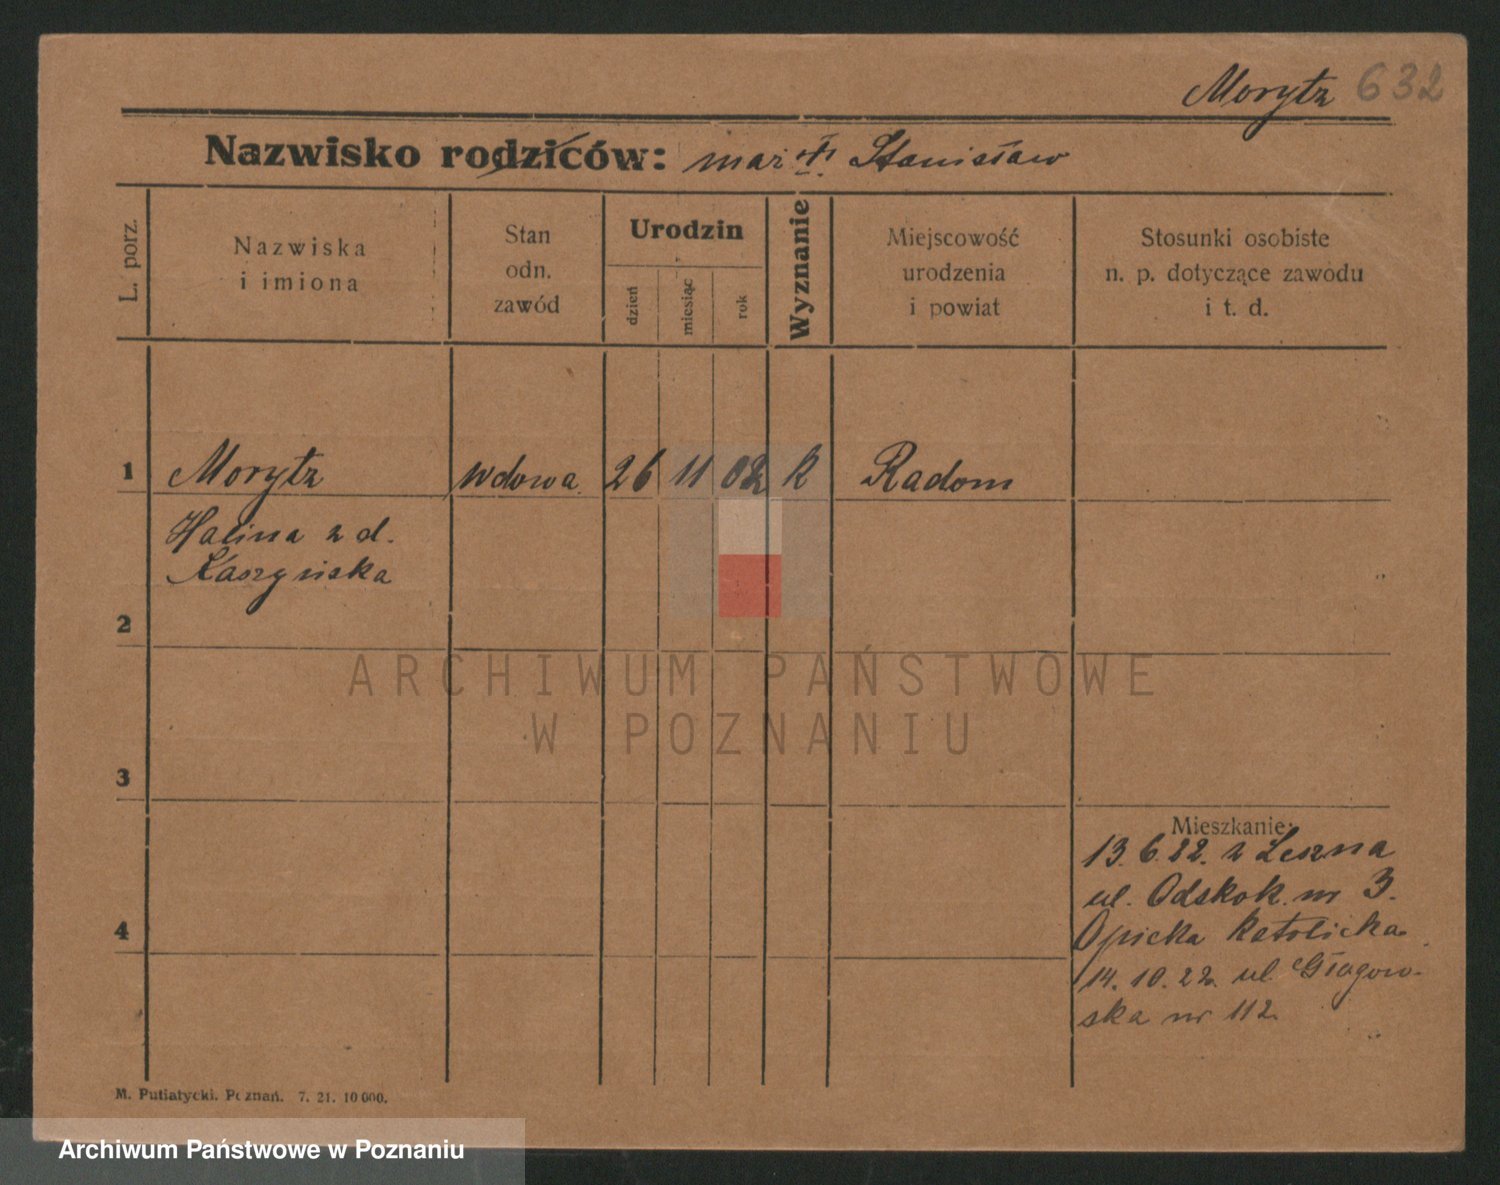 Morytz 632
Nazwisko rodziców: mąż ✝ Stanisław
L. porz.
Nazwiska
i imiona
Stan
odn.
zawód
Urodzin
dzień
miesiąc
rok
Wyznanie
Miejscowość
urodzenia
i powiat
Stosunki osobiste
n. p. dotyczące zawodu
i t. d.
1 Morytz wdowa 26 11 02 k Radom
Halina z d.
Kaszyńska
2
3
4
Mieszkanie:
13.6.22. z Leszna
ul. Odskok. nr 3.
Opieka Katolicka
14.10.22. ul. Głogow-
ska nr 112.
M. Putiatycki. Poznań. 7. 21. 10 000.
ARCHIWUM PAŃSTWOWE
W POZNANIU
Archiwum Państwowe w Poznaniu